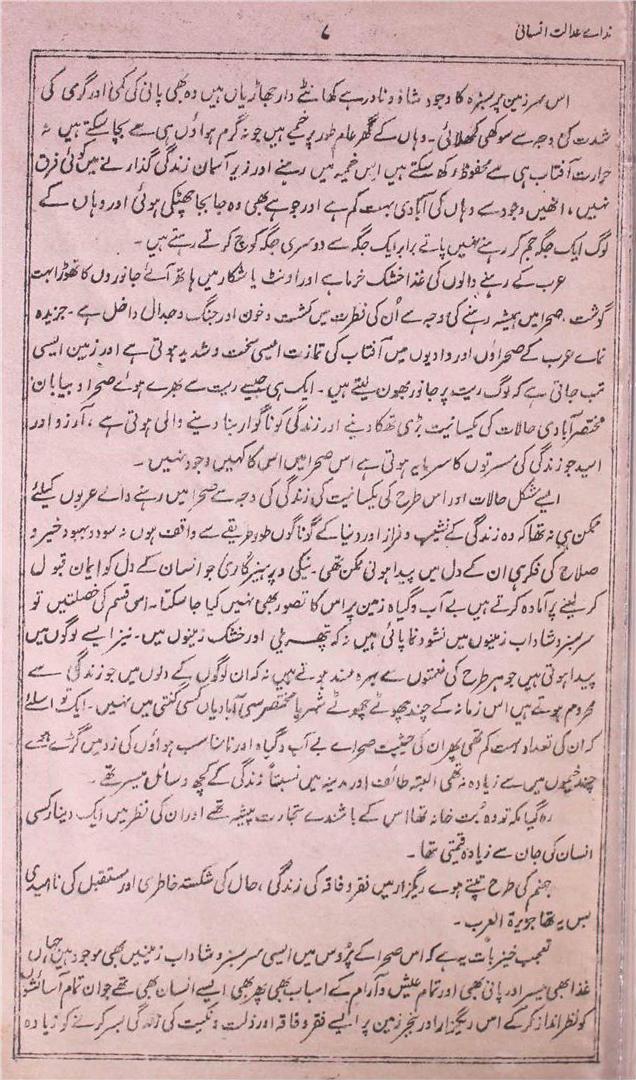 ندائے عدالت انسانی
۷
اس سرزمین پر سبزہ کا وجود شاذ و نادر ہے کھانٹے دار جھاڑیاں ہیں وہ بھی پانی کی کمی اور گرمی کی
شدت کی وجہ سے سوکھی کھلائی۔ وہاں کے گھر عام طور پر خیمے ہیں جو نہ گرم ہواؤں ہی سے بچا سکتے ہیں نہ
حرارت آفتاب ہی سے محفوظ رکھ سکتے ہیں اس خیمہ میں رہنے اور زیر آسمان زندگی گذارنے میں کوئی فرق
نہیں، انھیں وجوہ سے وہاں کی آبادی بہت کم ہے اور جو ہے بھی وہ جا بجا چھٹکی ہوئی اور وہاں کے
لوگ ایک جگہ جم کر رہنے نہیں پاتے برابر ایک جگہ سے دوسری جگہ کوچ کرتے رہتے ہیں۔
عرب کے رہنے والوں کی غذا خشک خرما ہے اور اونٹ یا شکار میں ہاتھ آئے جانوروں کا تھوڑا بہت
گوشت، صحرا میں ہمیشہ رہنے کی وجہ سے اُن کی فطرت میں کشت و خون اور جنگ و جدال داخل ہے۔ جزیرہ
نمائے عرب کے صحراؤں اور وادیوں میں آفتاب کی تمازت ایسی سخت و شدید ہوتی ہے اور زمین ایسی
تپ جاتی ہے کہ لوگ ریت پر جانور بھون لیتے ہیں۔ ایک ہی جیسے ریت سے بھرے ہوئے صحرا و بیابان
مختصر آبادی حالات کی یکسانیت بڑی تھکا دینے اور زندگی کو ناگوار بنا دینے والی ہوتی ہے، آرزو اور
امید جو زندگی کی مسرتوں کا سرمایہ ہوتی ہے اس صحرا میں اس کا کہیں وجود نہیں۔
ایسے مشکل حالات اور اس طرح کی یکسانیت کی زندگی کی وجہ سے صحرا میں رہنے والے عربوں کیلئے
ممکن ہی نہ تھا کہ وہ زندگی کے نشیب و فراز اور دنیا کے گوناگوں طور طریقے سے واقف ہوں نہ سود و بہبود خیر و
صلاح کی فکر ہی ان کے دل میں پیدا ہونی ممکن تھی۔ نیکی و پرہیزگاری جو انسان کے دل کو ایمان قبول
کر لینے پر آمادہ کرتے ہیں بے آب و گیاہ زمین پر اس کا تصور بھی نہیں کیا جا سکتا۔ اس قسم کی خصلتیں تو
سرسبز و شاداب زمینوں میں نشو و نما پاتی ہیں نہ کہ پتھریلی اور خشک زمینوں میں۔ نیز ایسے لوگوں میں
پیدا ہوتی ہیں جو ہر طرح کی نعمتوں سے بہرہ مند ہوتے ہیں نہ کہ ان لوگوں کے دلوں میں جو زندگی سے
محروم ہوتے ہیں اس زمانہ کے چند چھوٹے چھوٹے شہر یا مختصر سی آبادیاں کسی گنتی میں نہیں۔ ایک تو اسلئے
کہ ان کی تعداد بہت کم تھی پھر ان کی حیثیت صحرائے بے آب و گیاہ اور نامناسب ہواؤں کی زد میں گڑے ہوئے
چند خیموں سے زیادہ نہ تھی البتہ طائف اور مدینہ میں نسبتاً زندگی کے کچھ وسائل میسر تھے۔
رہ گیا مکہ تو وہ بت خانہ تھا اس کے باشندے تجارت پیشہ تھے اور ان کی نظر میں ایک دینار کسی
انسان کی جان سے زیادہ قیمتی تھا۔
جہنم کی طرح تپتے ہوے ریگزار میں فقر و فاقہ کی زندگی، حال کی شکستہ خاطری اور مستقبل کی ناامیدی
بس یہ تھا جزیرۃ العرب۔
تعجب خیز بات یہ ہے کہ اس صحرا کے پڑوس میں ایسی سرسبز و شاداب زمینیں بھی موجود ہیں جہاں
غذا بھی میسر اور پانی بھی اور تمام عیش و آرام کے اسباب بھی پھر بھی ایسے انسان بھی تھے جو ان تمام آسائشوں
کو نظر انداز کر کے اس ریگزار اور بنجر زمین پر ایسے فقر و فاقہ اور ذلت و نکبت کی زندگی بسر کرنے کو زیادہ